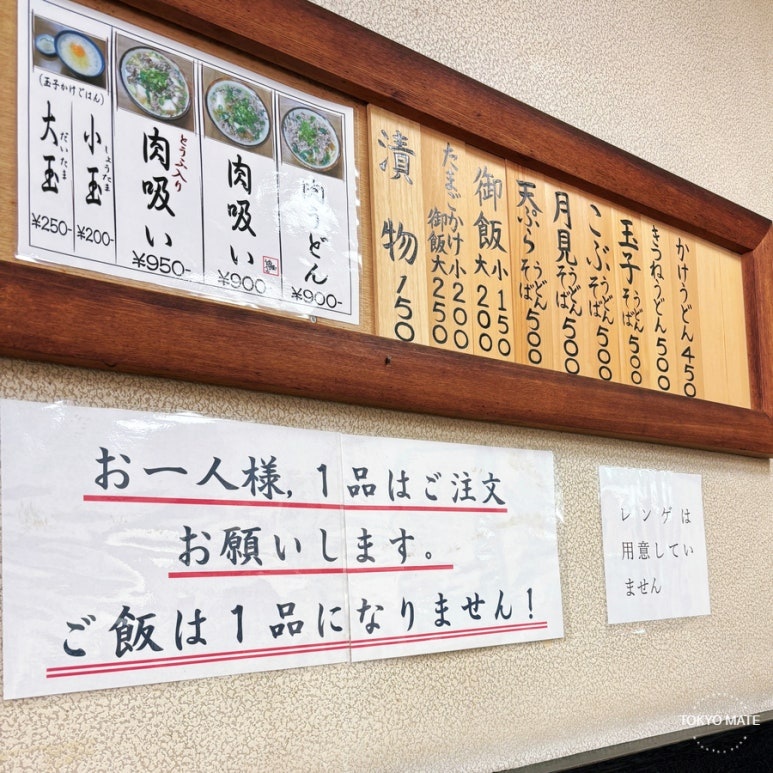 かけうどん 450
きつねうどん 500
玉子うどんそば 500
こぶうどんそば 500
月見うどんそば 500
天ぷらうどんそば 500
御飯 小 150
大 200
たまごかけ御飯 小 200
大 250
漬物 150
肉うどん
¥900-
肉吸い
¥900
とうふ入り
肉吸い
¥950-
(玉子かけごはん)
小玉
しょうたま
¥200-
大玉
だいたま
¥250-
お一人様,1品はご注文
お願いします。
ご飯は1品になりません!
レンゲは
用意してい
ません
TOKYO MATE